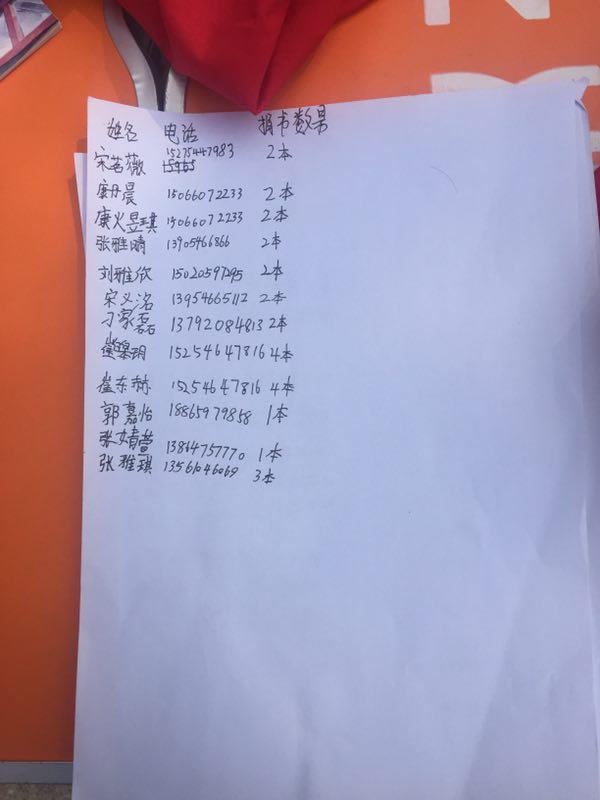 姓名 电话 捐书数量
宋茗薇 15275447983 2本
康丹晨 15066072233 2本
康火昱琪 15066072233 2本
张雅晴 13905466866 2本
刘雅欣 15020597295 2本
宋义洺 13954665112 2本
刁家磊 13792084813 2本
15254647816 4本
崔东赫 15254647816 4本
郭嘉怡 18865979858 1本
张婧萱 13864757770 1本
张雅琪 13561046069 3本